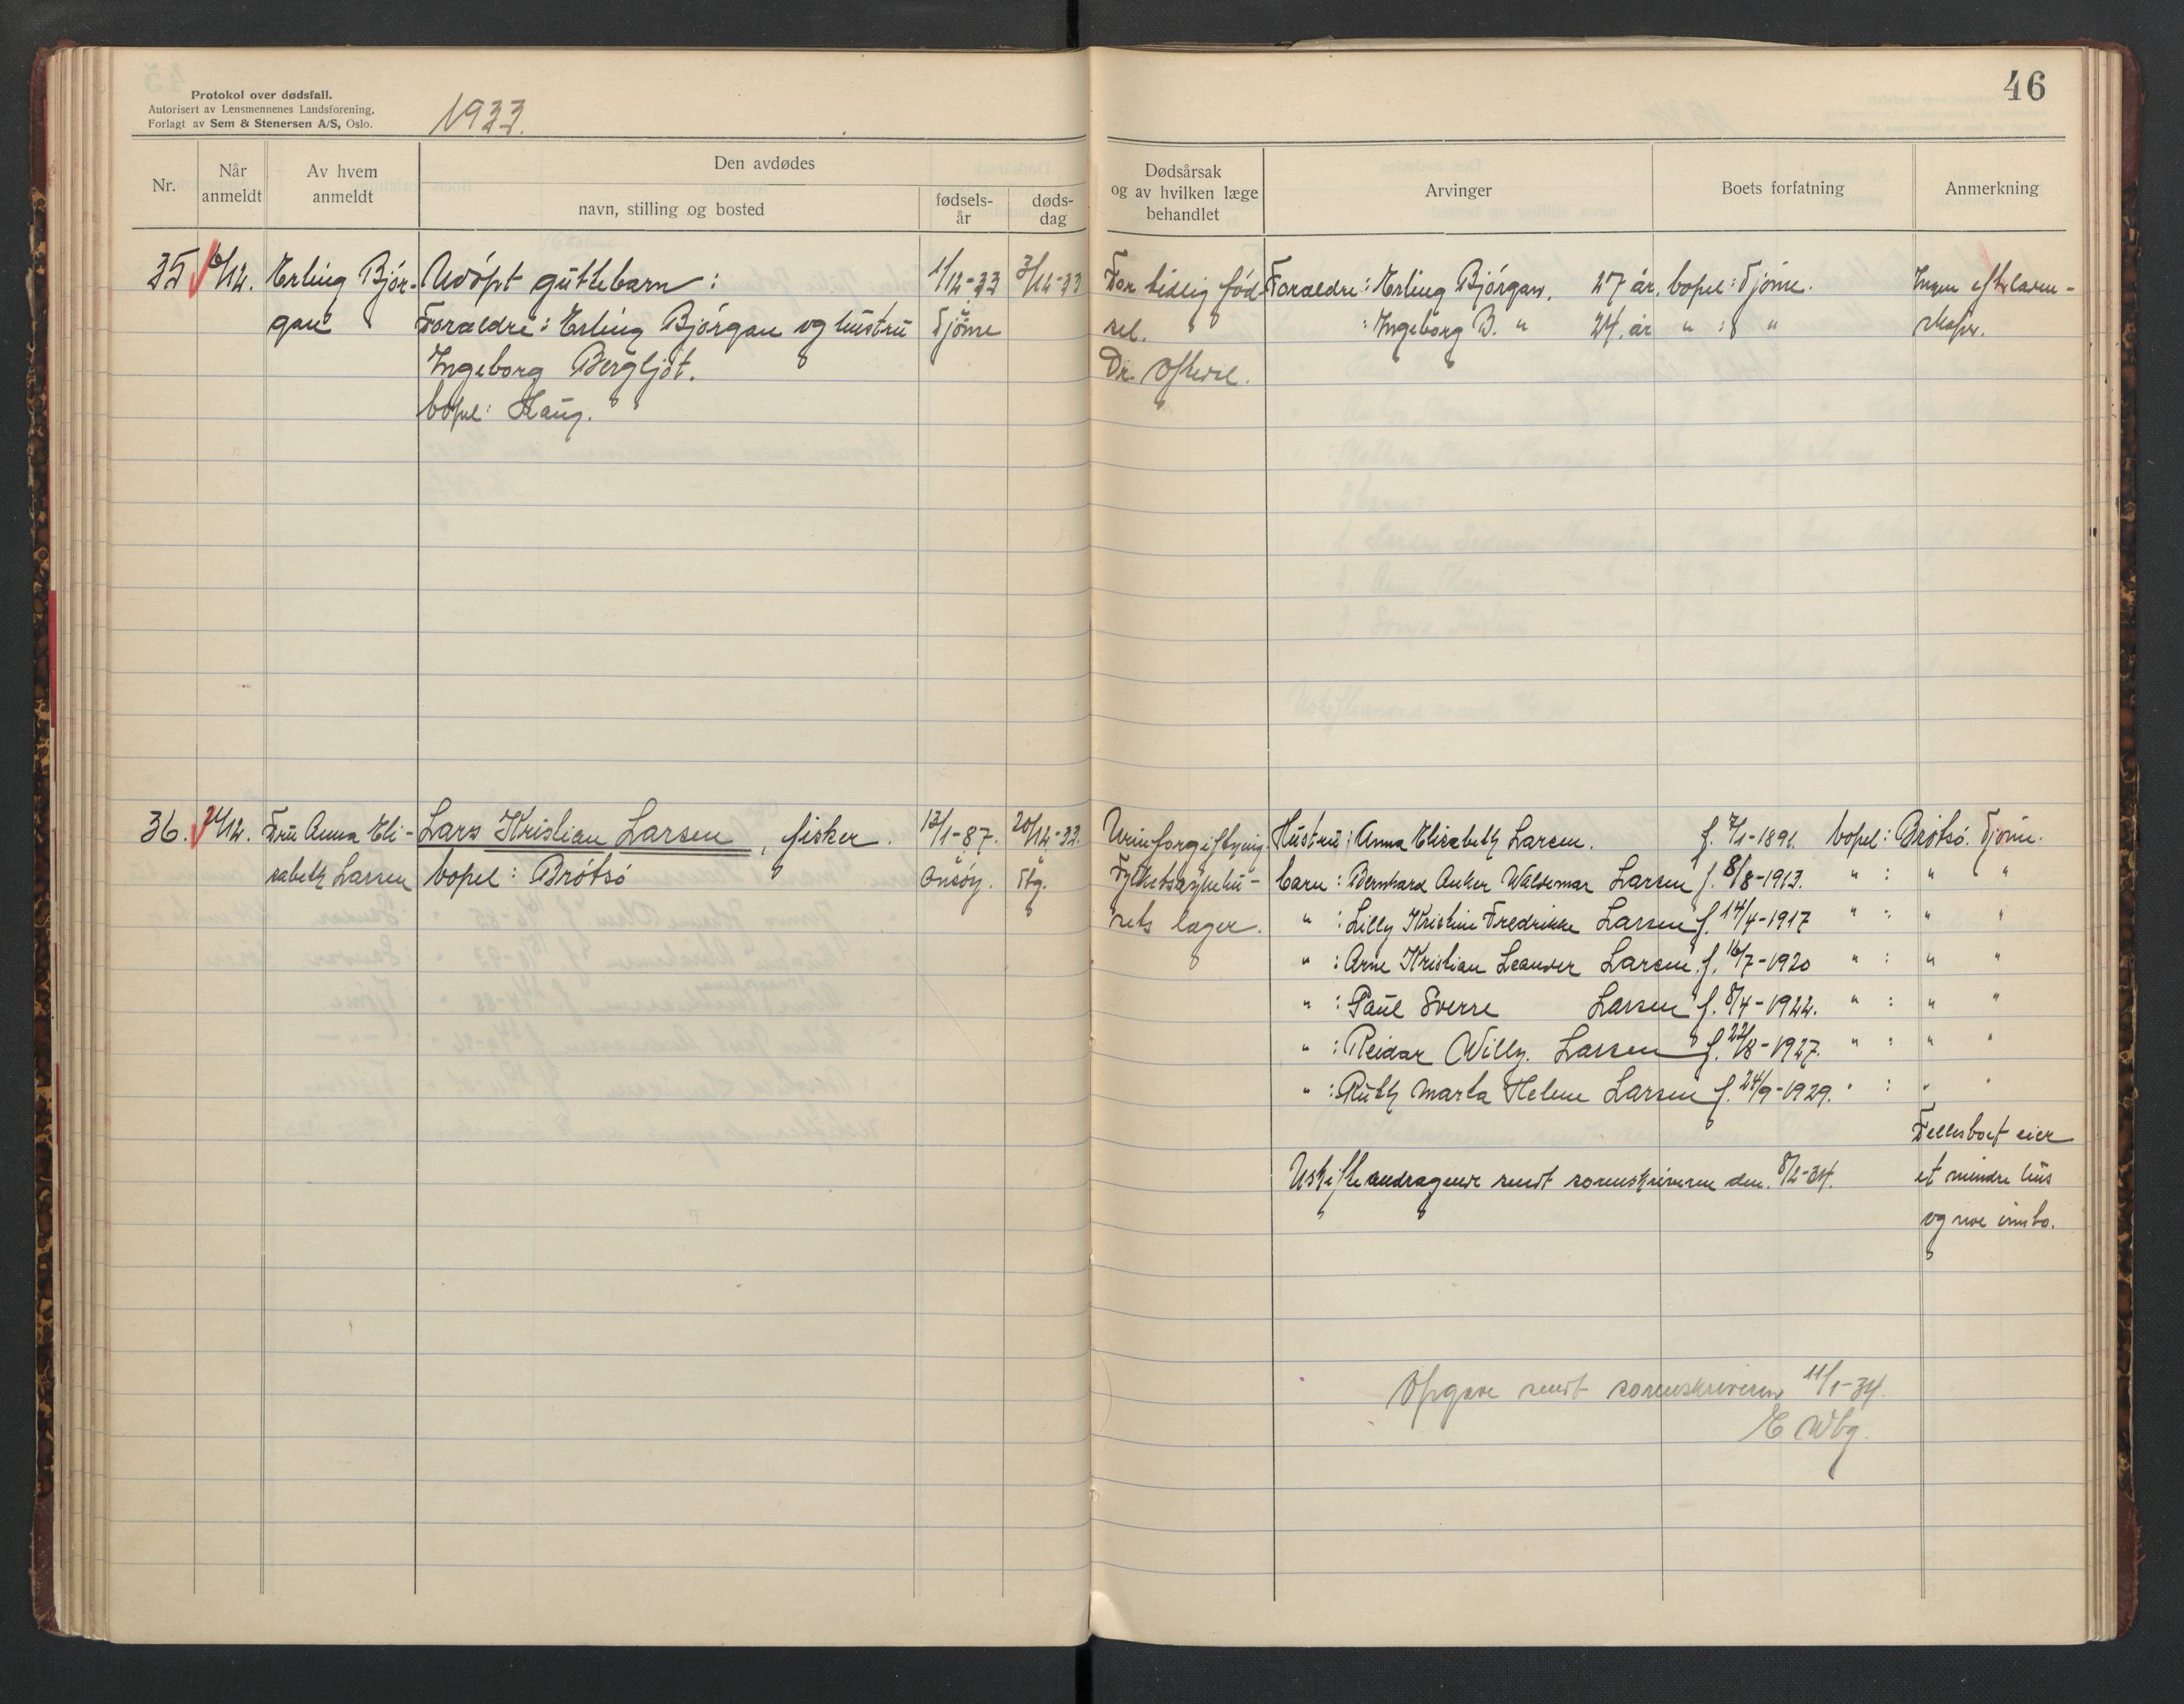 Protokol over dødsfall.
Autorisert av Lensmennenes Landsforening.
Forlagt av Sem & Stenersen A/S, Oslo.
1933.
46
Nr.
Når anmeldt
Av hvem anmeldt
Den avdødes
navn, stilling og bosted
fødsels-år
døds-dag
Dødsårsak og av hvilken læge behandlet
Arvinger
Boets forfatning
Anmerkning
35 6/12. Erling Bjør- Udöpt guttebarn: 1/12-33 3/12-33 For tidlig föd- Foraeldre: Erling Björgan. 27 år. bopel: Tjöme. Ingen efterlaten-
gan Foraeldre: Erling Björgan og hustru Tjöme sel. : Ingeborg B. " 24. år " : " skaper.
Ingeborg Bergljot. Dr.
bopel: Haug.
36. 21/12. Fru Anna Eli- Lars Kristian Larsen, fisker. 13/1-87. 20/12-33. Urinforgiftning. Hustru: Anna Elisabeth Larsen. f. 7/1-1891. bopel: Brötsö. Tjöme.
sabeth Larsen bopel: Brötsö Onsöy. Tbg. Fylkessykehu- barn: Bernhard Anker Waldemar Larsen f. 8/8-1913. " : " "
sets læger. " : Lilly Kristine Fredrikke Larsen f. 14/4-1917 " : " "
" : Arne Kristian Leander Larsen. f. 16/7-1920 " : " "
" : Paul Sverre Larsen f. 8/4-1922. " : " "
" : Reidar Willy. Larsen f. 22/8-1927. " : " "
" : Ruth Marta Helene Larsen f. 24/9-1929. " : " "
Fellesboet eier
Uskifteandragende sendt sorenskriveren den. 8/2-34. et mindre hus
og noe innbo.
Opgave sendt sorenskriveren 11/1-34.
E Wbg.